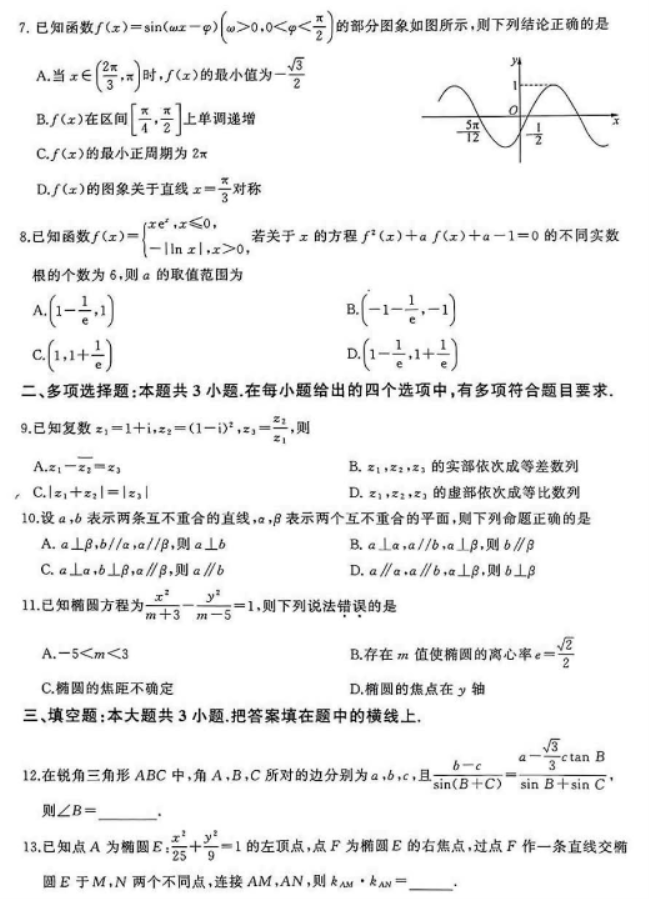 7. 已知函数 f(x)=sin(ωx−φ)(ω>0,0<φ<π/2)的部分图象如图所示,则下列结论正确的是
A.当 x∈(2π/3,π)时,f(x)的最小值为−√3/2
B.f(x)在区间[π/4,π/2]上单调递增
C.f(x)的最小正周期为 2π
D.f(x)的图象关于直线 x=π/3对称
y
1
O
x
−5π/12
−1/2
8.已知函数 f(x)={xeˣ,x≤0, −|ln x|,x>0, 若关于 x 的方程 f²(x)+a f(x)+a−1=0 的不同实数
根的个数为 6,则 a 的取值范围为
A.(1−1/e,1)
B.(−1−1/e,−1)
C.(1,1+1/e)
D.(1−1/e,1+1/e)
二、多项选择题:本题共 3 小题.在每小题给出的四个选项中,有多项符合题目要求.
9.已知复数 z₁=1+i,z₂=(1−i)²,z₃=z₂/z₁,则
A.z₁−z̅₂=z₃
B. z₁,z₂,z₃ 的实部依次成等差数列
C.|z₁+z₂|=|z₃|
D. z₁,z₂,z₃ 的虚部依次成等比数列
10.设 a,b 表示两条互不重合的直线,α,β 表示两个互不重合的平面,则下列命题正确的是
A. a⊥β,b//α,α//β,则 a⊥b
B. a⊥α,a//b,α⊥β,则 b//β
C. a⊥α,b⊥β,α//β,则 a//b
D. a//α,a//b,α⊥β,则 b⊥β
11.已知椭圆方程为 x²/(m+3)−y²/(m−5)=1,则下列说法错误的是
A.−5<m<3
B.存在 m 值使椭圆的离心率 e=√2/2
C.椭圆的焦距不确定
D.椭圆的焦点在 y 轴
三、填空题:本大题共 3 小题.把答案填在题中的横线上.
12.在锐角三角形 ABC 中,角 A,B,C 所对的边分别为 a,b,c,且 (b−c)/sin(B+C)=(a−√3/3 c tan B)/(sin B+sin C),
则∠B=______.
13.已知点 A 为椭圆 E:x²/25+y²/9=1 的左顶点,点 F 为椭圆 E 的右焦点,过点 F 作一条直线交椭
圆 E 于 M,N 两个不同点,连接 AM,AN,则 k_AM·k_AN=______.